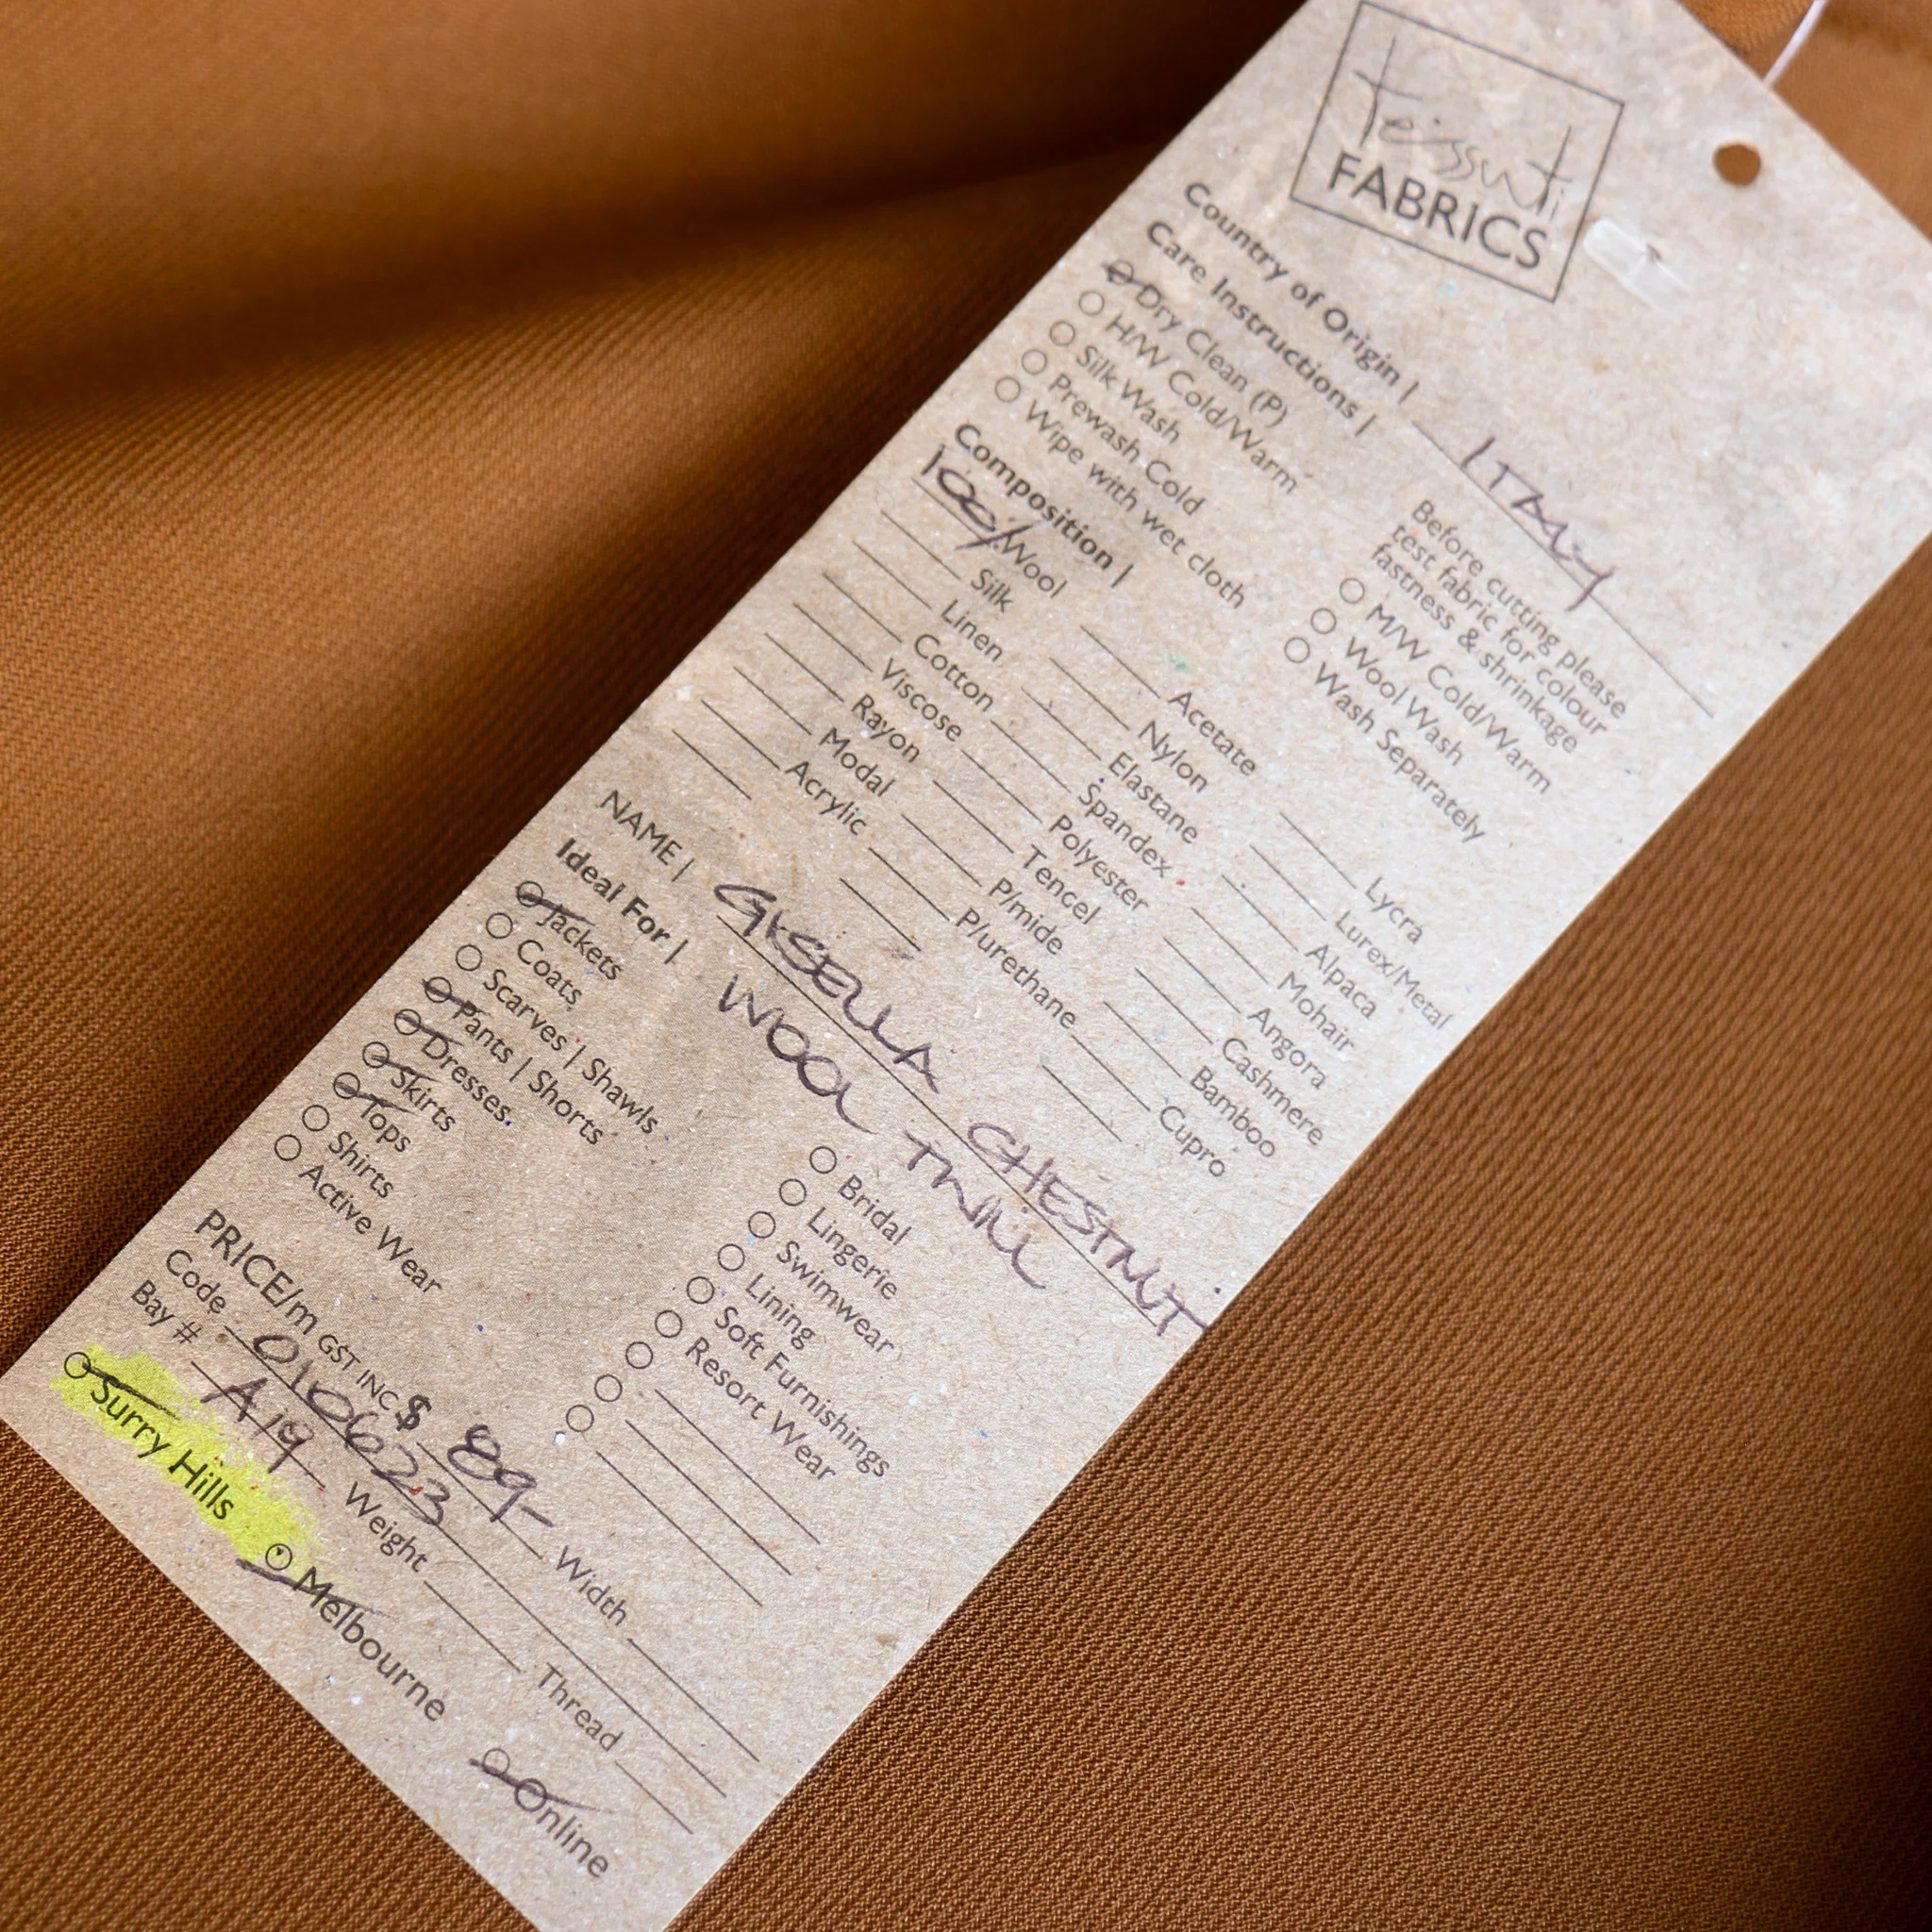 teissuti
FABRICS
Country of Origin | ITALY
Care Instructions |
Dry Clean (P)
H/W Cold/Warm
Silk Wash
Prewash Cold
Wipe with wet cloth
Before cutting please
test fabric for colour
fastness & shrinkage
M/W Cold/Warm
Wool Wash
Wash Separately
Composition |
100% Wool
Silk
Linen
Cotton
Viscose
Rayon
Modal
Acrylic
Acetate
Nylon
Elastane
Spandex
Polyester
Tencel
P/mide
P/urethane
Lycra
Lurex/Metal
Alpaca
Mohair
Angora
Cashmere
Bamboo
Cupro
NAME | GISELLA CHESTNUT
WOOL TWILL
Ideal For |
Jackets
Coats
Scarves | Shawls
Pants | Shorts
Dresses
Skirts
Tops
Shirts
Active Wear
Bridal
Lingerie
Swimwear
Lining
Soft Furnishings
Resort Wear
PRICE/m GST INC $ 89- Width
Code 010623
Bay # A19 Weight Thread
Surry Hills Melbourne Online